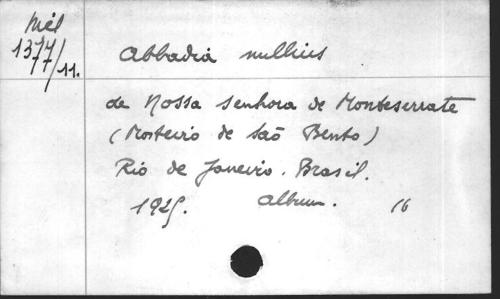 Mél
1377/11.
Abbadia nullius
de Nossa Senhora de Monteserrate
(Mosteiro de São Bento)
Rio de Janeiro. Brasil.
1925. Album. 16